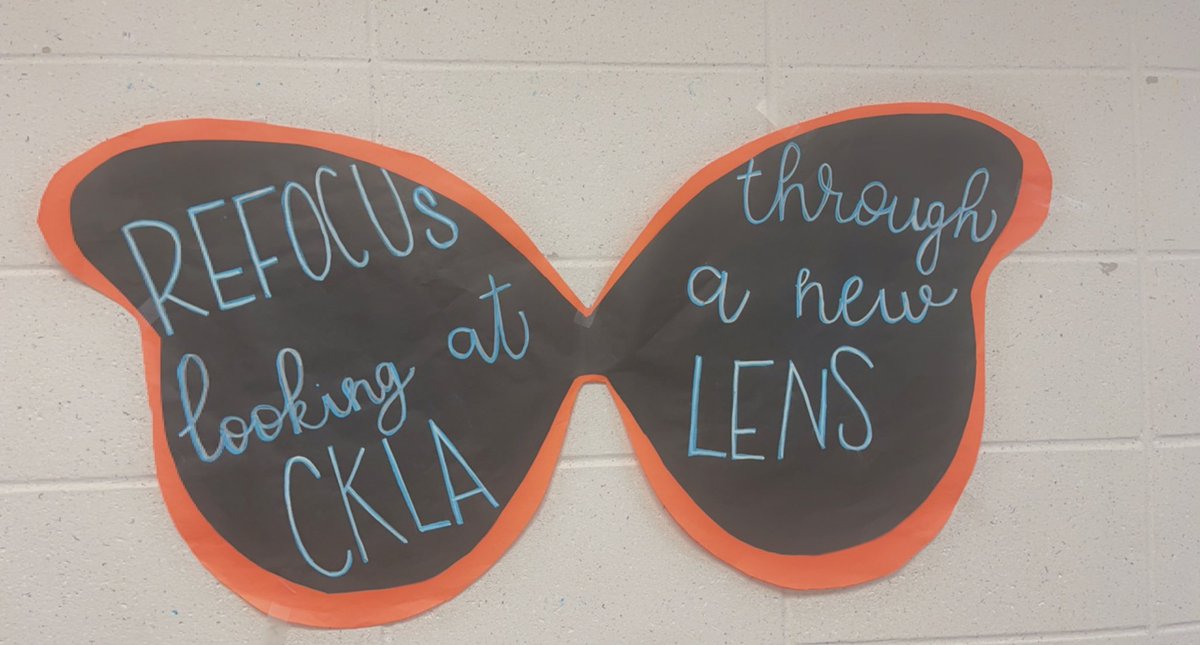 REFOCUS
looking at
CKLA
through
a new
LENS